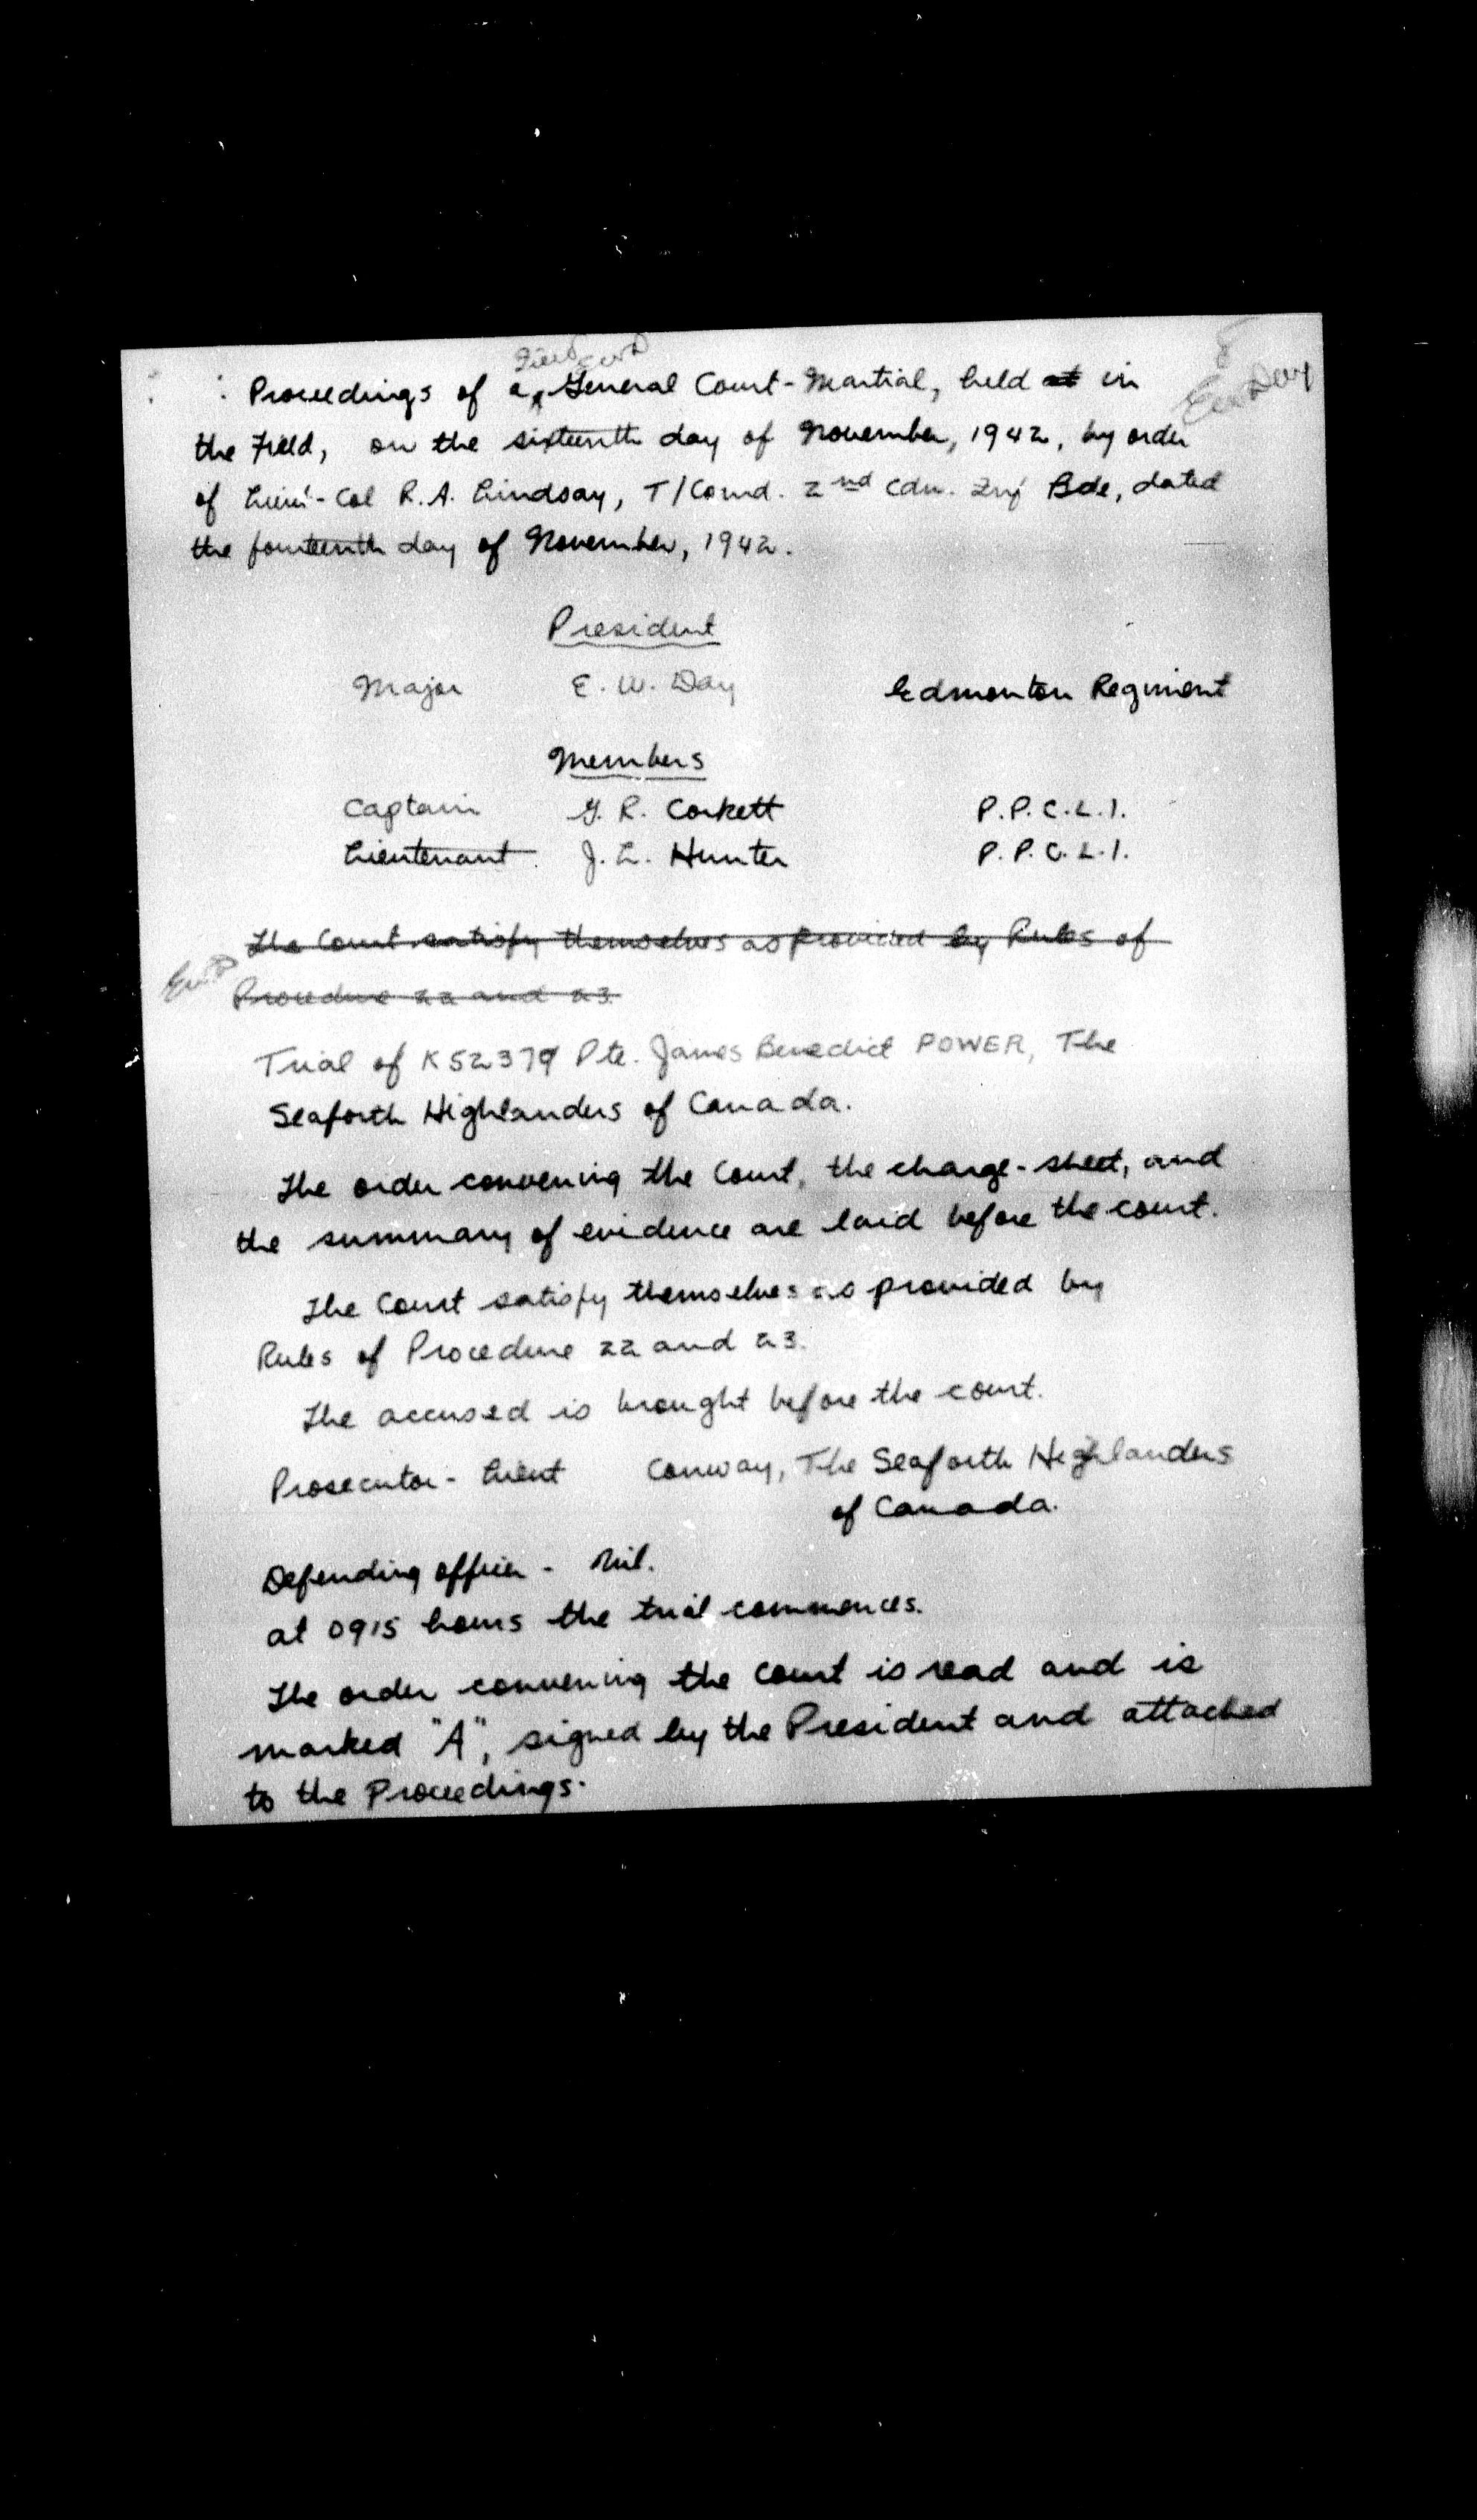 Field EWD
Proceedings of a General Court-Martial, held at in
EW Day
the Field, on the sixteenth day of November, 1942, by order
of Lieut-Col R.A. Lindsay, T/Comd. 2nd Cdn. Inf Bde, dated
the fourteenth day of November, 1942.
President
Major E. W. Day Edmonton Regiment
Members
Captain G. R. Corkett P.P.C.L.I.
Lieutenant J. L. Hunter P.P.C.L.I.
The Court satisfy themselves as provided by Rules of
EWD
Procedure 22 and 23.
Trial of K52379 Pte. James Benedict POWER, The
Seaforth Highlanders of Canada.
The order convening the Court, the charge-sheet, and
the summary of evidence are laid before the court.
The Court satisfy themselves as provided by
Rules of Procedure 22 and 23.
The accused is brought before the court.
Prosecutor - Lieut Conway, The Seaforth Highlanders
of Canada.
Defending officer - Nil.
at 0915 hours the trial commences.
The order convening the Court is read and is
marked "A", signed by the President and attached
to the Proceedings.